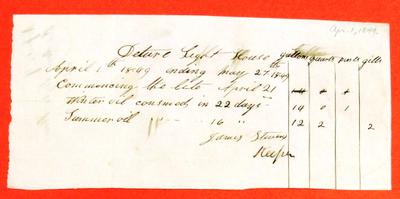 Apr. 1, 1849
Light House gallons quarts pints gills
April 1th 1849 ending may 27th 1849
Commencing the April 21
Winter oil consmed in 22 days 14 0 1
Summer oil " " 16 " 12 2 2
James
Keeper